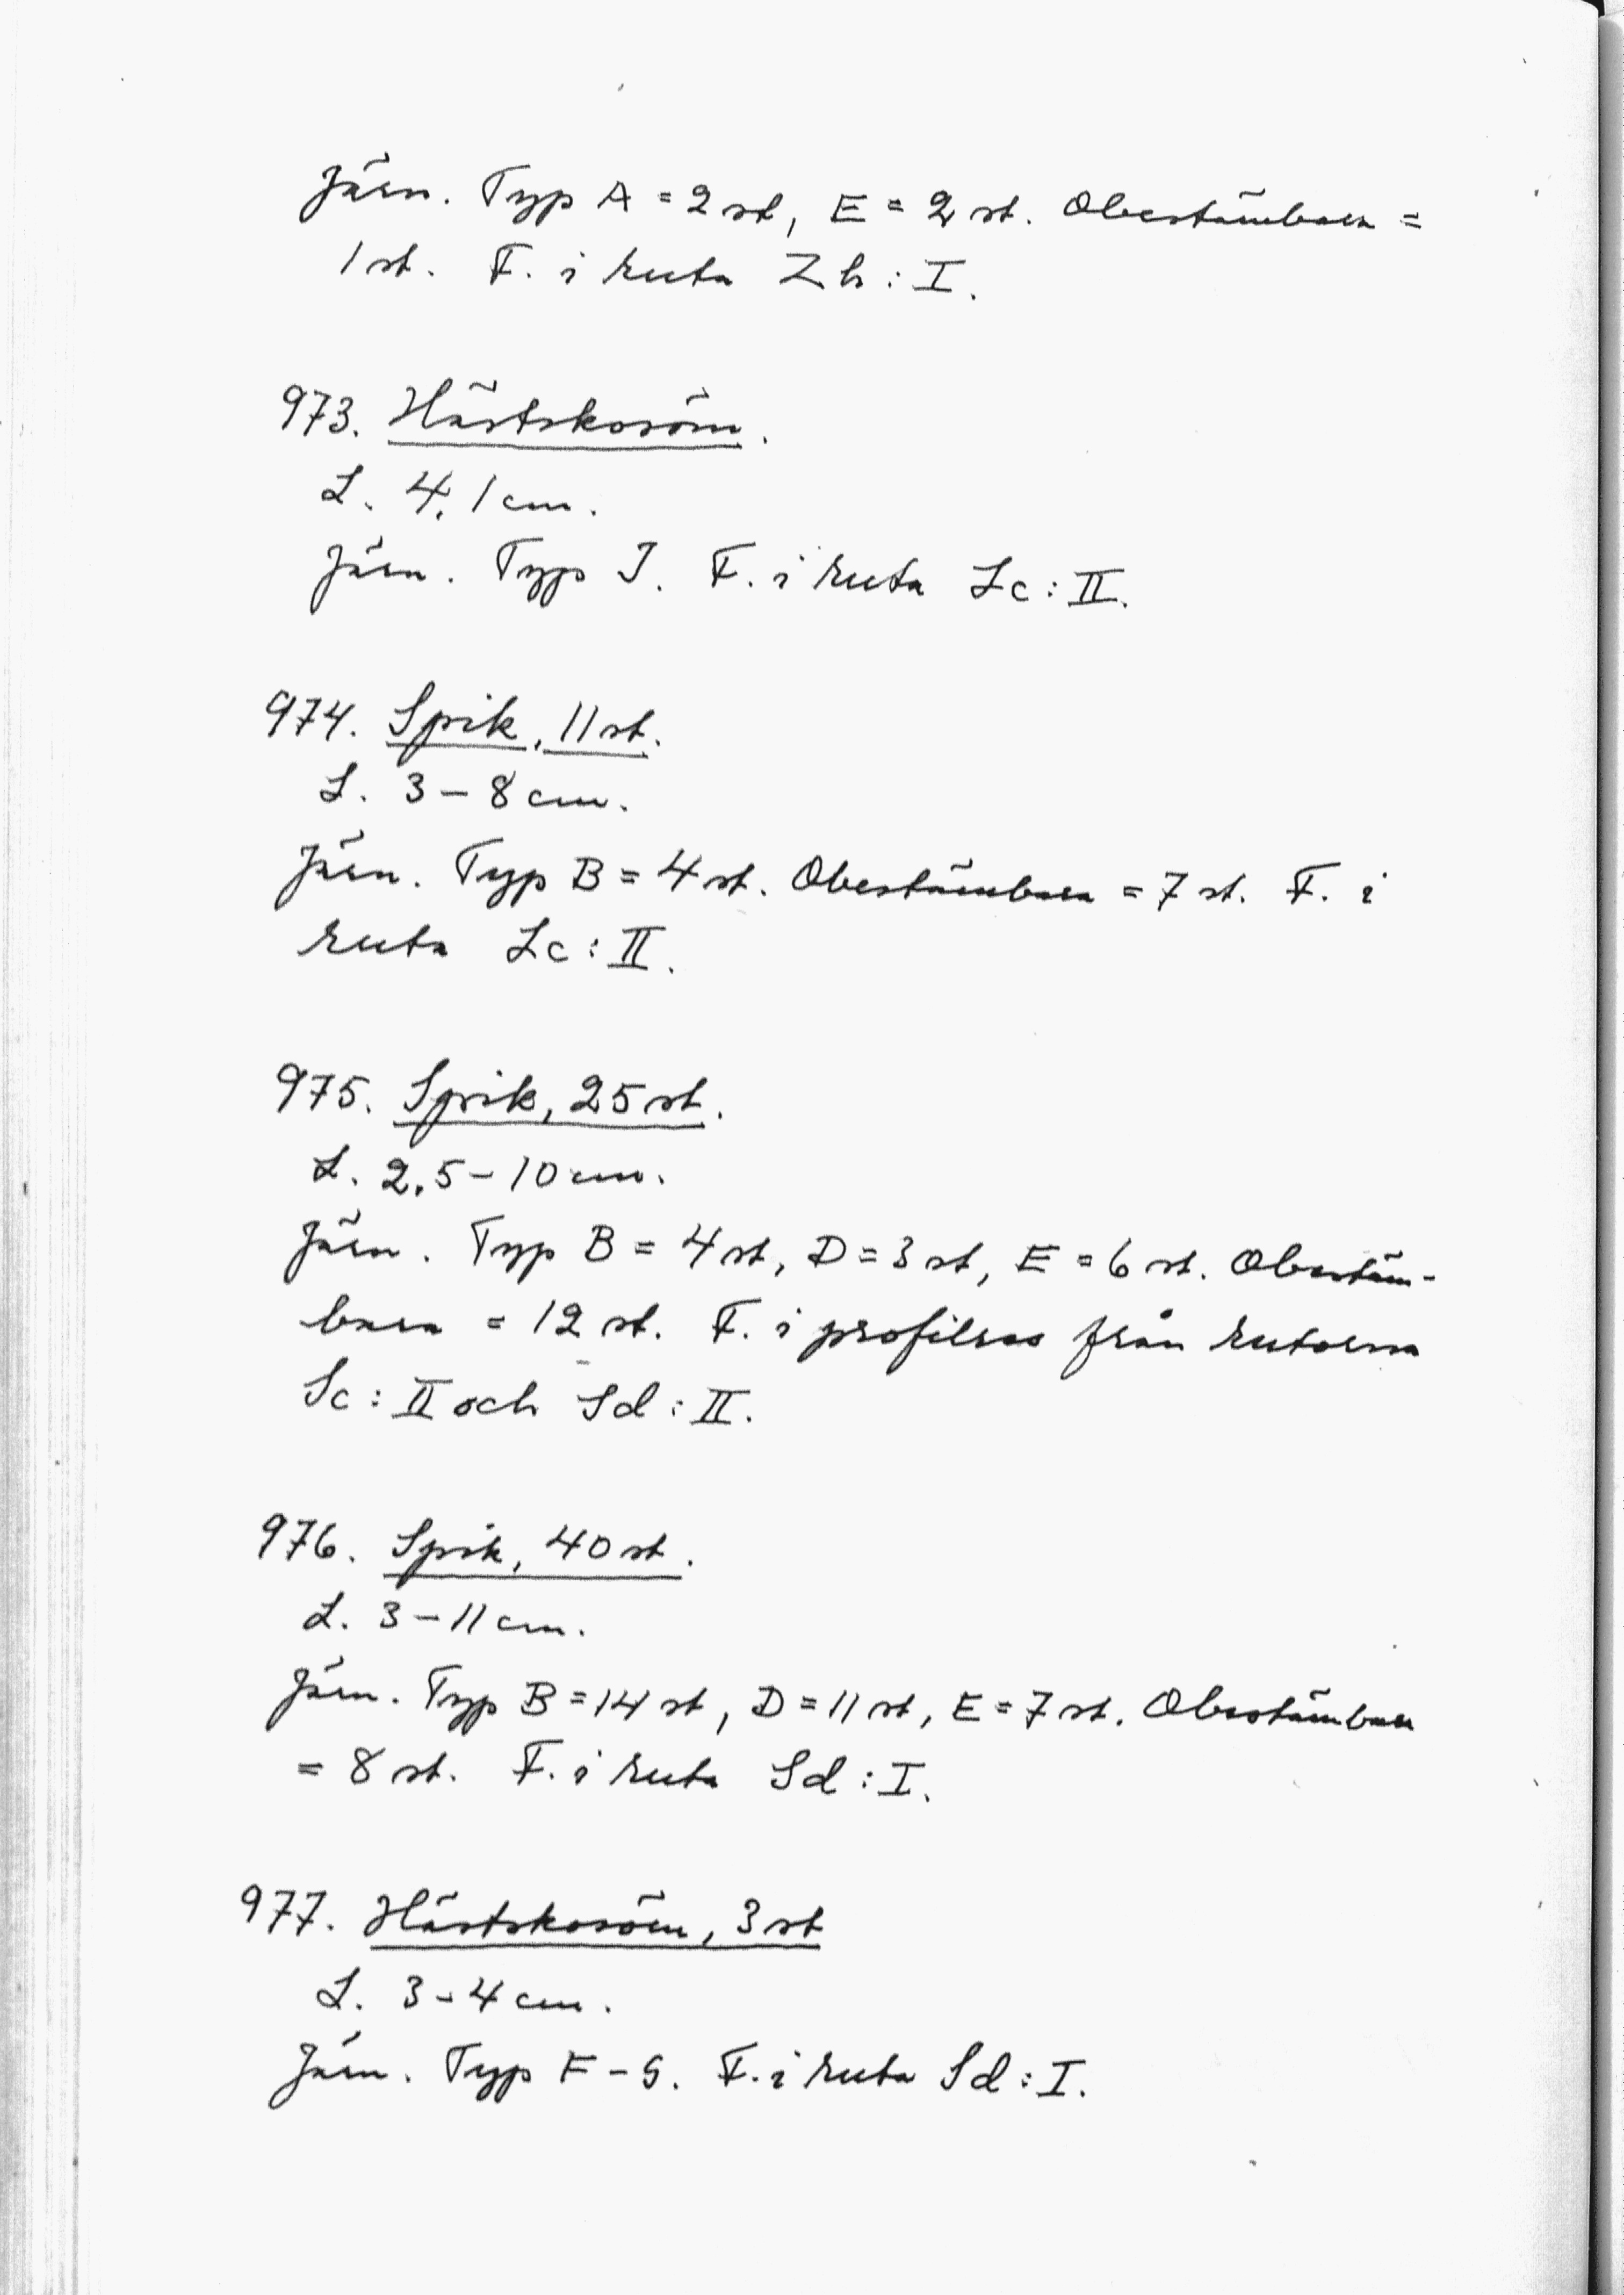 Järn. Typ A = 2 st, E = 2 st. Obestämbara =
1 st. F. i ruta Zh : I.
973. Hästskosöm.
L. 4,1 cm.
Järn. Typ I. F. i ruta Lc : II.
974. Spik, 11 st.
L. 3 – 8 cm.
Järn. Typ B = 4 st. Obestämbara = 7 st. F. i
ruta Lc : II.
975. Spik, 25 st.
L. 2,5 – 10 cm.
Järn. Typ B = 4 st, D = 3 st, E = 6 st. Obestäm-
bara = 12 st. F. i profilras från rutorna
Sc : II och Sd : II.
976. Spik, 40 st.
L. 3 – 11 cm.
Järn. Typ B = 14 st, D = 11 st, E = 7 st. Obestämbara
= 8 st. F. i ruta Sd : I.
977. Hästskosöm, 3 st
L. 3 - 4 cm.
Järn. Typ F – G. F. i ruta Sd : I.